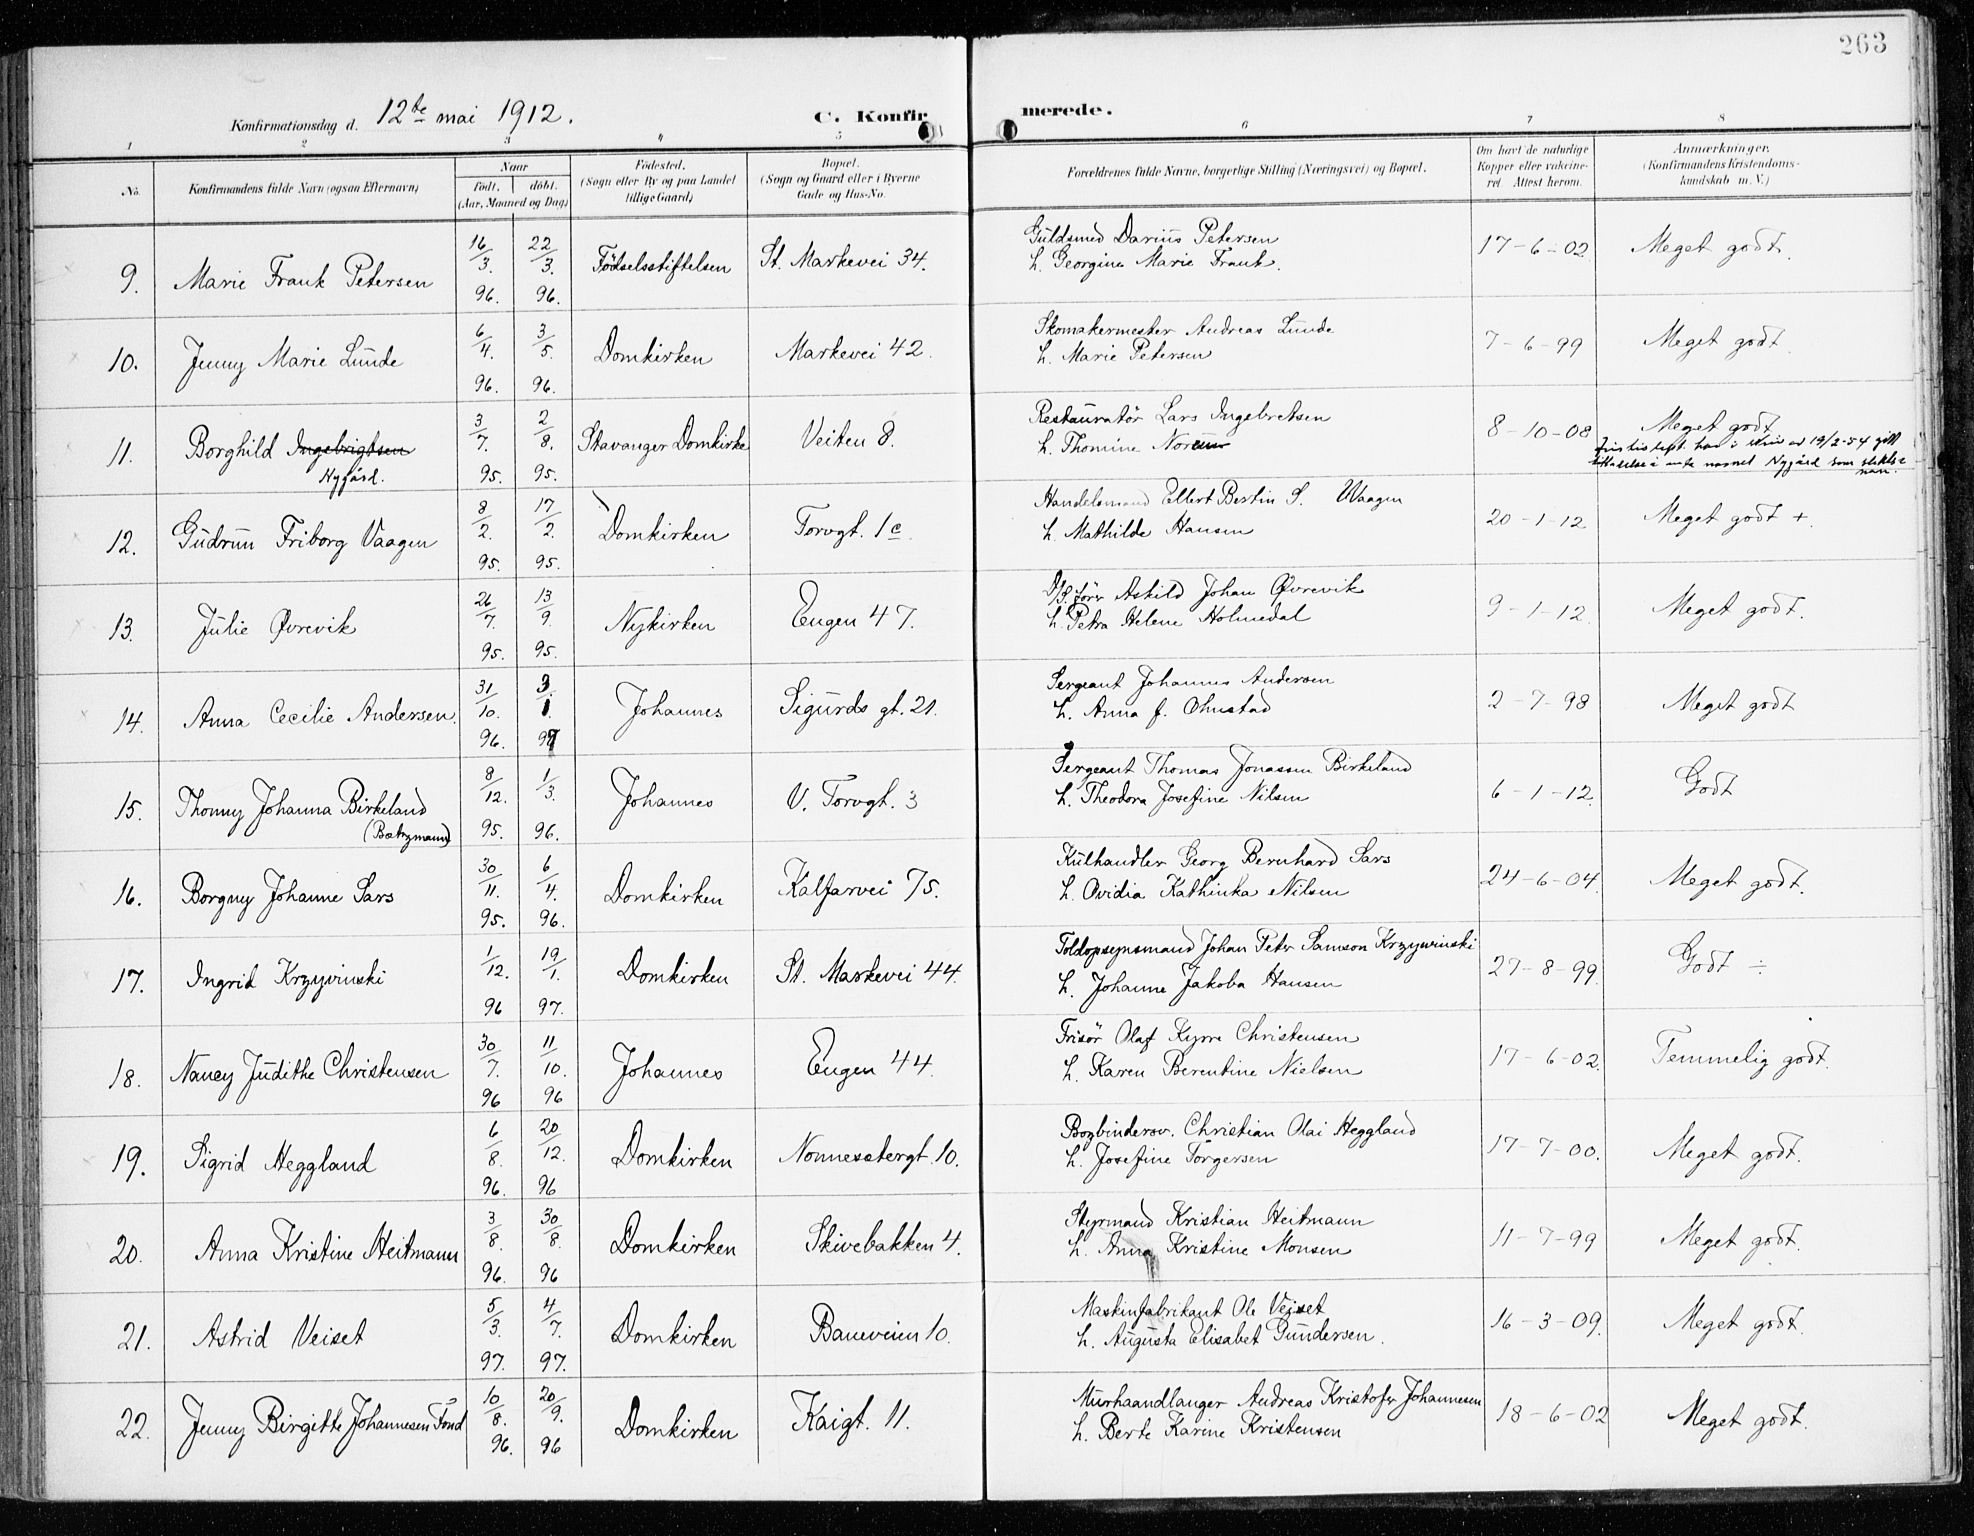 263
Konfirmationsdag d. 12te mai 1912. C. Konfirmerede.
1 2 3 4 5 6 7 8
No. Konfirmandens fulde Navn (ogsaa Efternavn) Naar født. døbt. (Aar, Maaned og Dag) Fødested. (Sogn eller By og paa Landet tillige Gaard) Bopæl. (Sogn og Gaard eller i Byerne Gade og Hus-No. Forældrenes fulde Navne, borgerlige Stilling (Næringsvei) og Bopæl. Om havt de naturlige Kopper eller vakcineret. Attest herom. Anmærkninger. (Konfirmandens Kristendomskundskab m. V.)
9. Marie Frank Petersen 16/3. 96. 22/3. 96. Fødselsstiftelsen St. Markevei 34. Guldsmed Darius Petersen 17-6-02 Meget godt.
h. Georgine Marie Frank.
10. Jenny Marie Lunde 6/4. 96. 3/5. 96. Domkirken Markevei 42. Skomakermester Andreas Lunde 7-6-99 Meget godt.
h. Marie Petersen
11. Borghild Ingebrigtsen Nygård. 3/7. 95. 2/8. 95. Stavanger Domkirke Veiten 8. Restauratør Lars Ingebretsen 8-10-08 Meget godt
h. Thomine
av 19/2-54 navnet Nygård som slekts=navn.
12. Gudrun Friborg Vaagen 8/2. 95. 17/2. 95. Domkirken Torvgt. 1c. Handelsmand Ellert Bertin S. Waagen 20-1-12 Meget godt +.
h. Mathilde Hansen
13. Julie Øvrevik 26/7. 95. 13/9. 95. Nykirken Engen 47. D/S. fører Askild Johan Øvrevik 9-1-12 Meget godt.
h. Petra Helene Holmedal
14. Anna Cecilie Andersen. 31/10. 96. 3/1. 97 Johannes Sigurds gt. 21. Sergeant Johannes Andersen 2-7-98 Meget godt
h. Anna f. Ohnstad
15. Thonny Johanna Birkeland (Bøtzmann) 8/12. 95. 1/3. 96. Johannes V. Torvgt. 3 Sergeant Thomas Jonassen Birkeland 6-1-12. Godt
h. Theodora Josefine Nilsen
16. Borgny Johanne Sars 30/11. 95. 6/4. 96. Domkirken Kalfarvei 75. Kulhandler Georg Bernhard Sars 24-6-04. Meget godt.
h. Ovidia Kathinka Nilsen
17. Ingrid Krzyvinski 1/12. 96 19/1. 97. Domkirken St. Markevei 44. Toldopsynsmand Johan Peter Samson Krzywinski 27-8-99. Godt ÷
h. Johanne Jakoba Hansen
18. Nancy Judithe Christensen 30/7. 96 11/10. 96 Johannes Engen 44. Frisør Olaf Kyrre Christensen 17-6-02. Temmelig godt.
h. Karen Berentine Nielsen
19. Sigrid Heggland 6/8. 96. 20/12. 96 Domkirken Nonnesetergt. 10. Bogbindersv. Christian Olai Heggland 17-7-00. Meget godt.
h. Josefine Torgersen
20. Anna Kristine Heitmann 3/8. 96. 30/8. 96 Domkirken Skivebakken 4. Styrmand Kristian Heitmann 11-7-99 Meget godt.
h. Anna Kristine Monsen
21. Astrid Veiset 5/3. 97. 4/7. 97. Domkirken Baneveien 10. Maskinfabrikant Ole Veiset 16-3-09. Meget godt.
h. Augusta Elisabet Gundersen.
22. Jenny Birgitte Johannesen Fond 10/8. 96. 20/9. 96 Domkirken Kaigt. 11. Murhaandlanger Andreas Kristofer Johannesen 18-6-02 Meget godt.
h. Berte Karine Kristensen